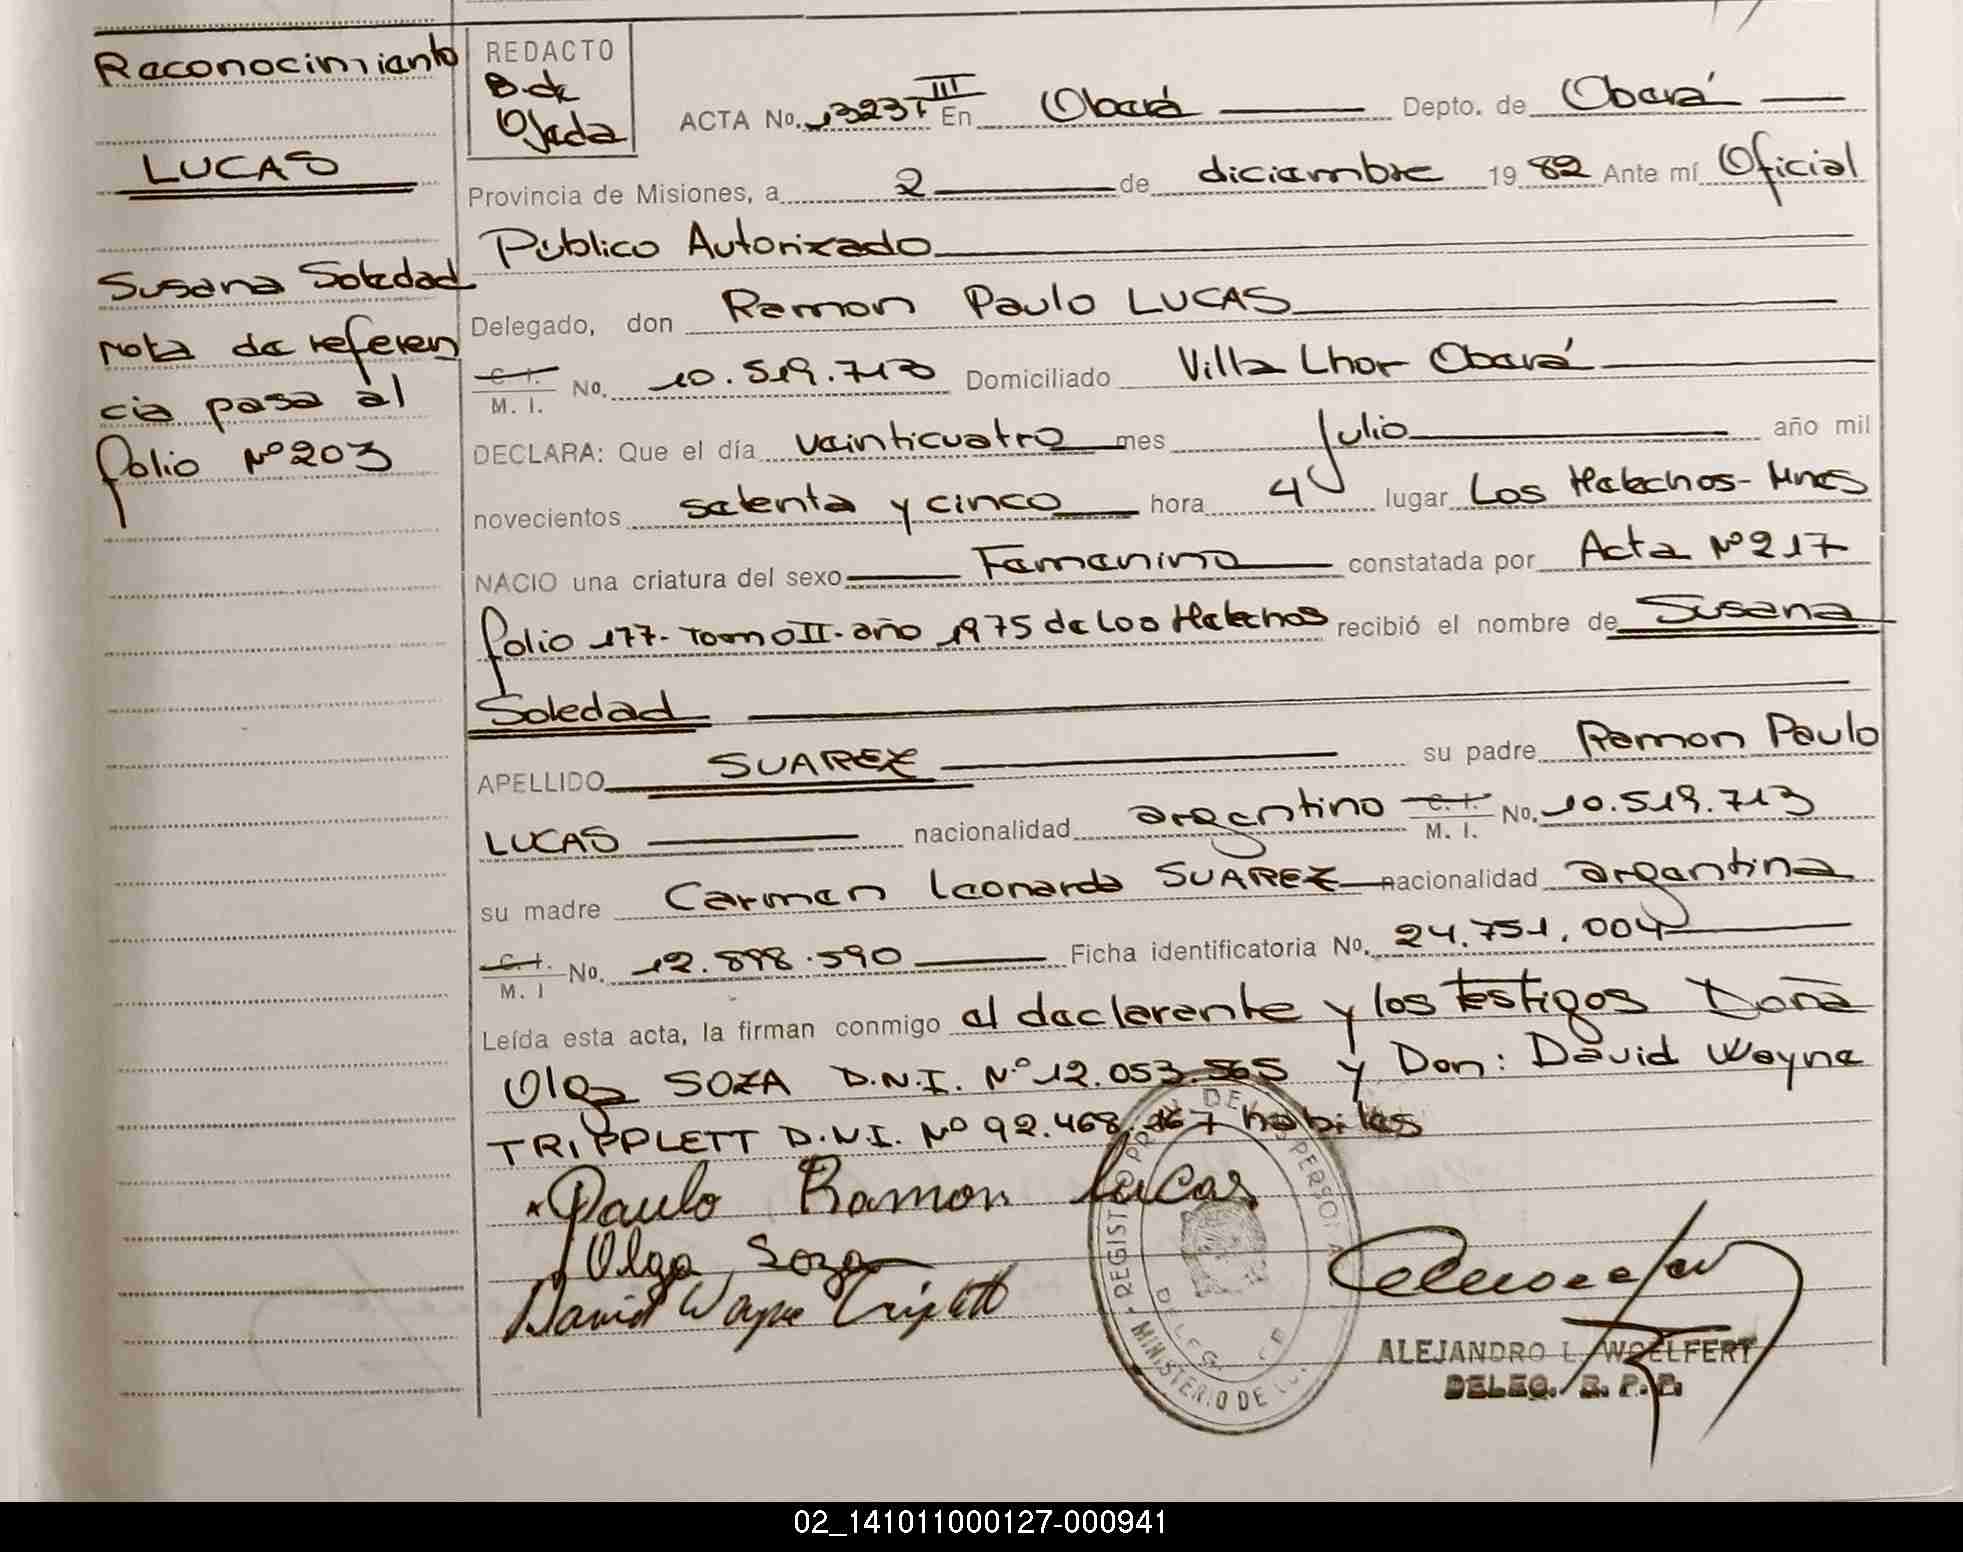 Reconocimiento
LUCAS
Susana Soledad
nota de referen
cia pasa al
folio Nº 203
REDACTO
B. de
Ojeda
ACTA No. 1323T III En Oberá Depto. de Oberá
Provincia de Misiones, a 2 de diciembre 19 82 Ante mí Oficial
Público Autorizado
Delegado, don Ramon Paulo LUCAS
C. I. M. I. No. 10.519.713 Domiciliado Villa Lhor Oberá
DECLARA: Que el día veinticuatro mes Julio año mil
novecientos setenta y cinco hora 4 lugar Los Helechos - Mnes
NACIO una criatura del sexo Femenino constatada por Acta Nº 217
folio 177 - Tomo II - año 1975 de Los Helechos recibió el nombre de Susana
Soledad
APELLIDO SUAREZ su padre Ramon Paulo
LUCAS nacionalidad argentino C. I. M. I. No. 10.519.713
su madre Carmen Leonarda SUAREZ nacionalidad argentina
C. I. M. I No. 12.898.590 Ficha identificatoria No. 24.751.004
Leída esta acta, la firman conmigo el declarante y los testigos Doña
Olga SOZA D.N.I. Nº 12.053.565 y Don: David Wayne
TRIPPLETT D.N.I. Nº 92.468.167 habiles
Paulo Ramon Lucas
Olga Soza
David Wayne Triplett
REGISTRO DE PERSONA
MINISTERIO DE
DELEG.
ALEJANDRO L. WOELFERT
DELEG. R. P. P.
02_141011000127-000941